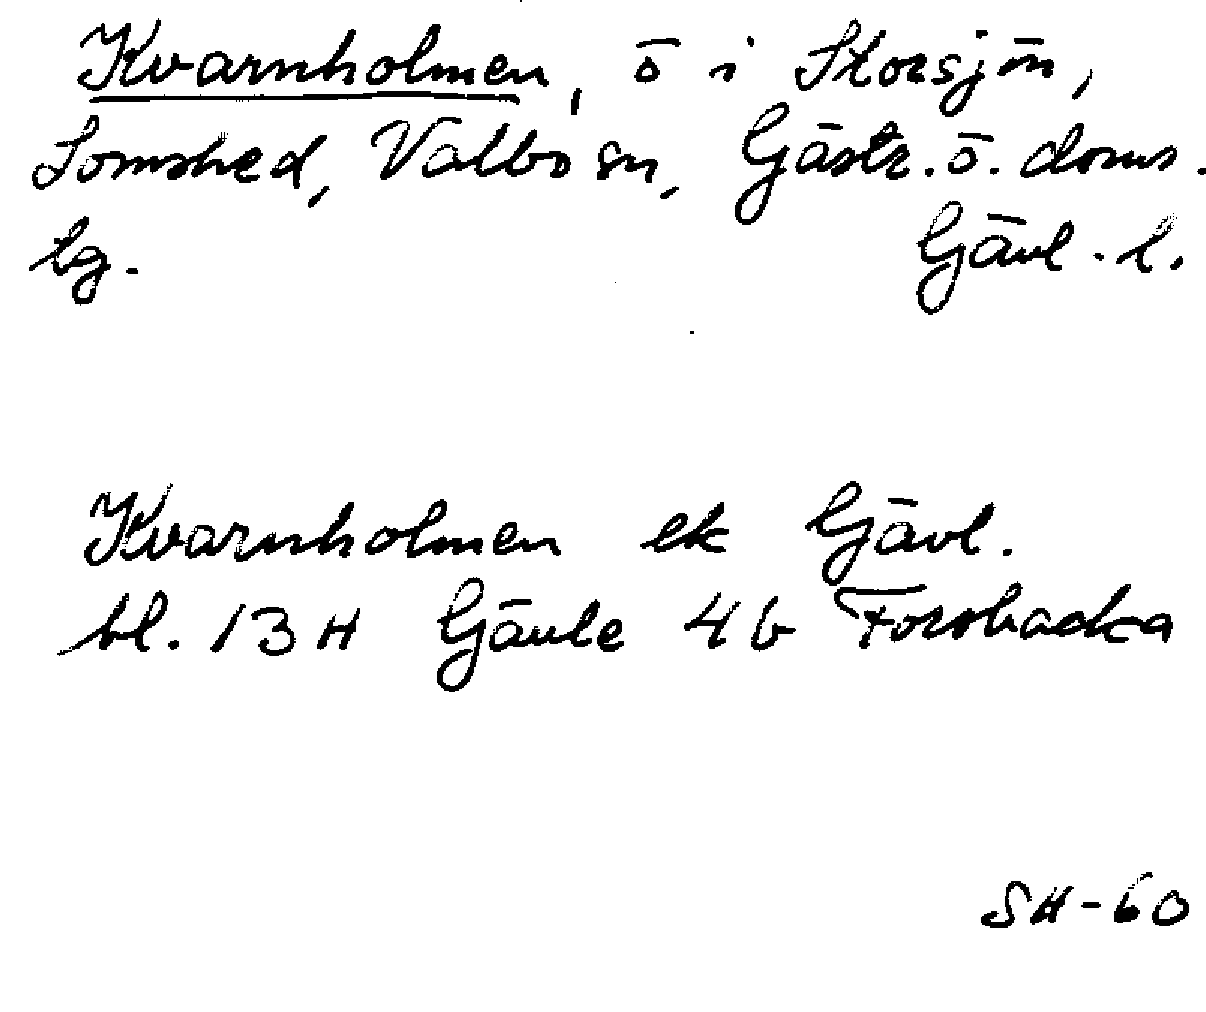 Kvarnholmen, ö i Storsjön,
Lomshed, Valbo sn, Gästr. ö. doms.
lg. Gävl. l.
Kvarnholmen ek Gävl.
bl. 13H Gävle 4b Forsbacka
SH-60